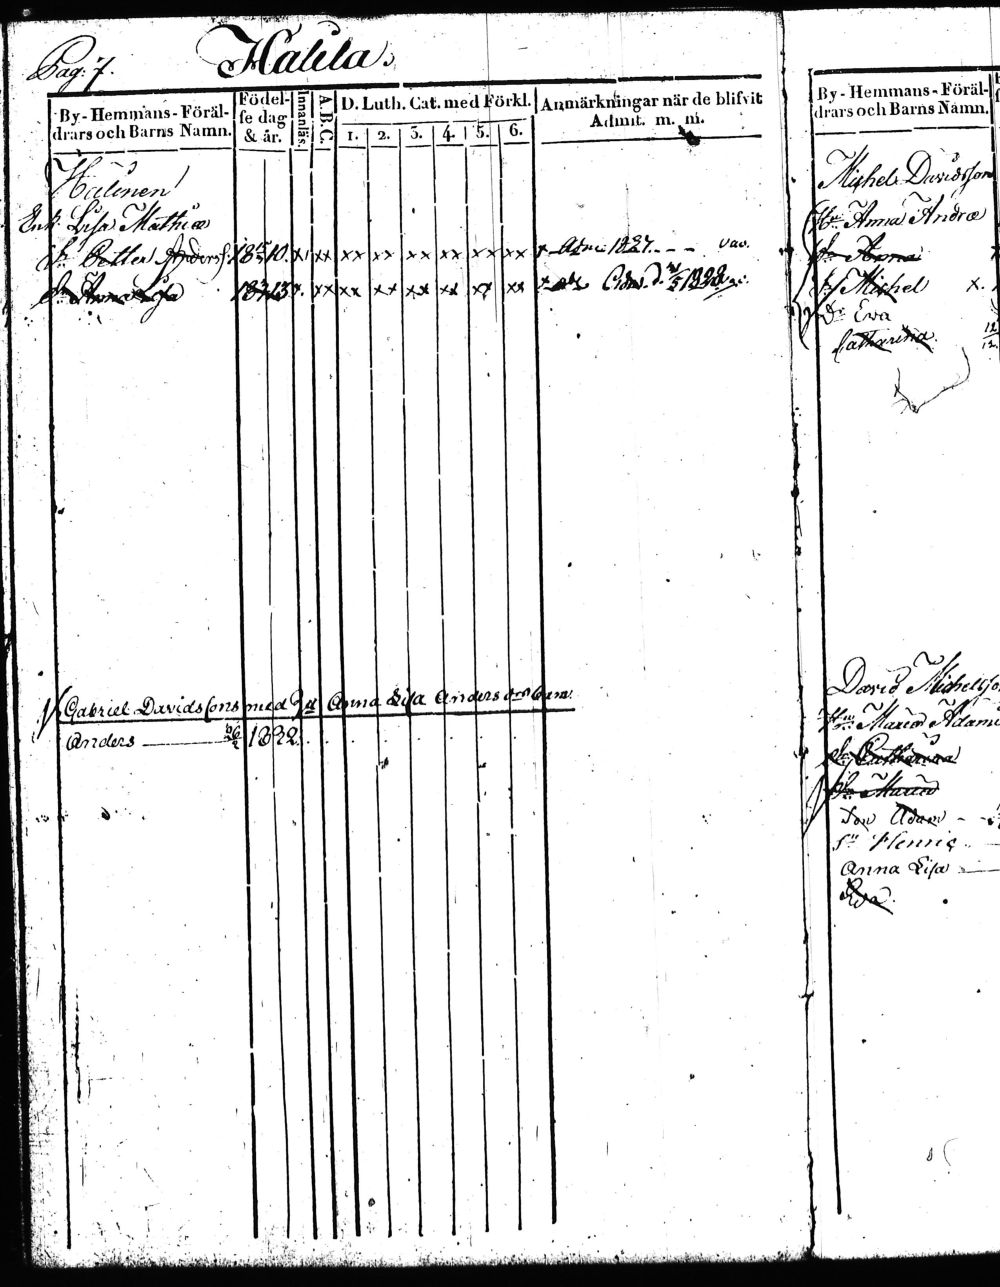 Pag: 7.
By - Hemmans - Föräl-
drars och Barns Namn.
Födel-
se dag
& år.
Innanläs.
A.B.C.
D. Luth. Cat. med Förkl.
1. 2. 3. 4. 5. 6.
Anmärkningar när de blifvit
Admit. m. m.
Enk. Lisa Mathiæ
Sn Petter Anders 10. x x x x x x x x x x x x Adm: 1827. - - vac.
Anna Lisa 13 x x x x x x x x x x x x
Gabriel Davidsons med Anna Lisa Andersdr barn.
Anders 26/2 1832.
By - Hemmans - Föräl-
drars och Barns Namn.
Michel Davidsson
Hu Anna Andræ
Dr Anna
Sn Michel x.
Dr Eva
Catharina. 12/12
David Michelsso
Hu Maria Adami
Dr Catharina
Dr Maria
Son Adam - -
Sn Henric
Anna Lisa
Eva.